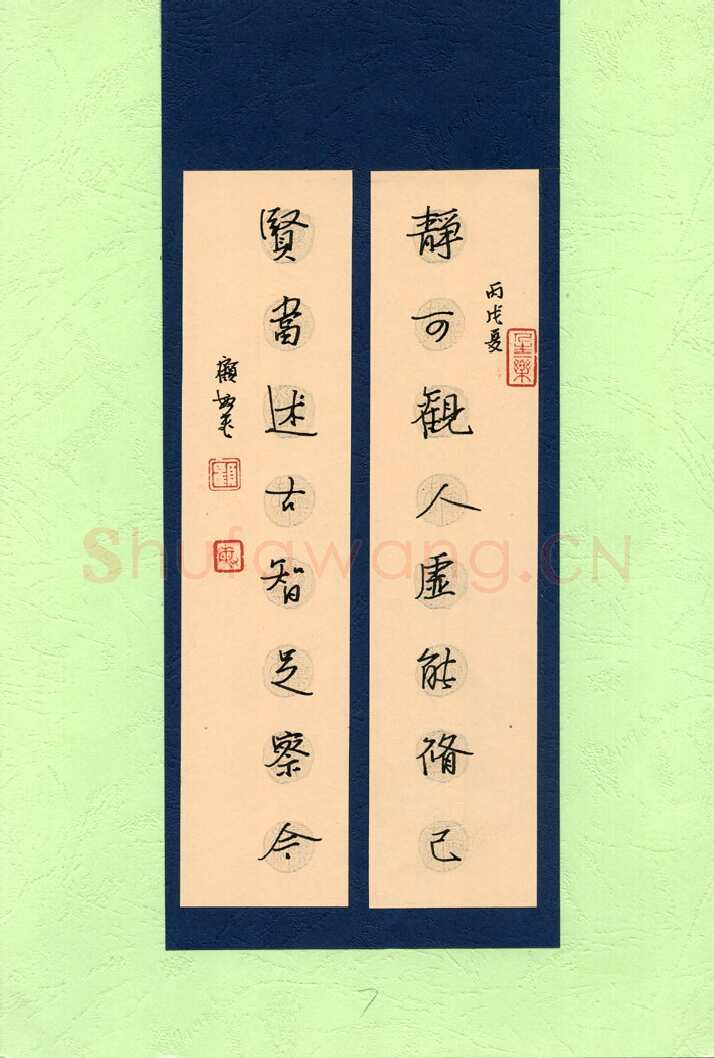 丙戌夏
靜可觀人虛能脩己
賢當述古智足察今
Shufawang.CN
7